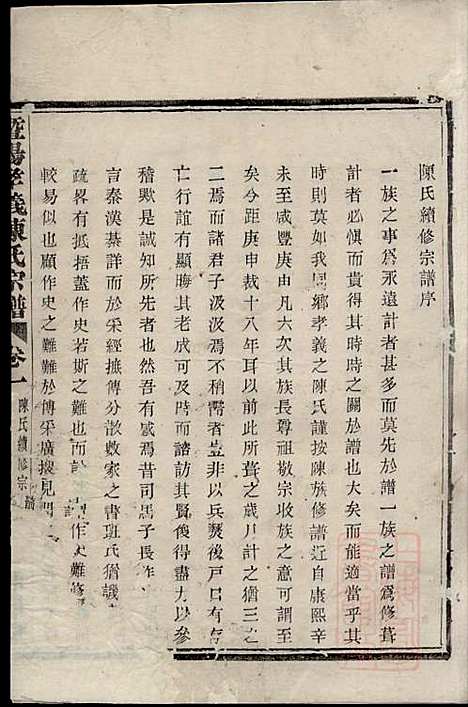 陳氏續修宗譜序
一族之事為永遠計者甚多而莫先於譜一族之譜為修葺
計者必慎而貴得其時時之關於譜也大矣而能適當乎其
時則莫如我同鄉孝義之陳氏謹按陳族修譜近自康熙辛
未至咸豐庚申凡六次其族長尊祖敬宗收族之意可謂至
矣今距庚申裁十八年耳以前此所葺之歲月計之猶三之
二焉而諸君子汲汲焉不稍懈者豈非以兵燹後戶口有存
亡行誼有顯晦其老成可及時諮訪其賢俊得盡力以參
稽歟是誠知所先者也然吾有感焉昔司馬子長作
言秦漢綦詳而於采經摭傳分散數家之書班氏猶譏
疏畧有抵捂蓋作史若斯之難也而 作史難修
較易似也顧作史之難難於傳采廣搜見聞
暨陽孝義陳氏宗譜 卷一 陳氏續修宗譜